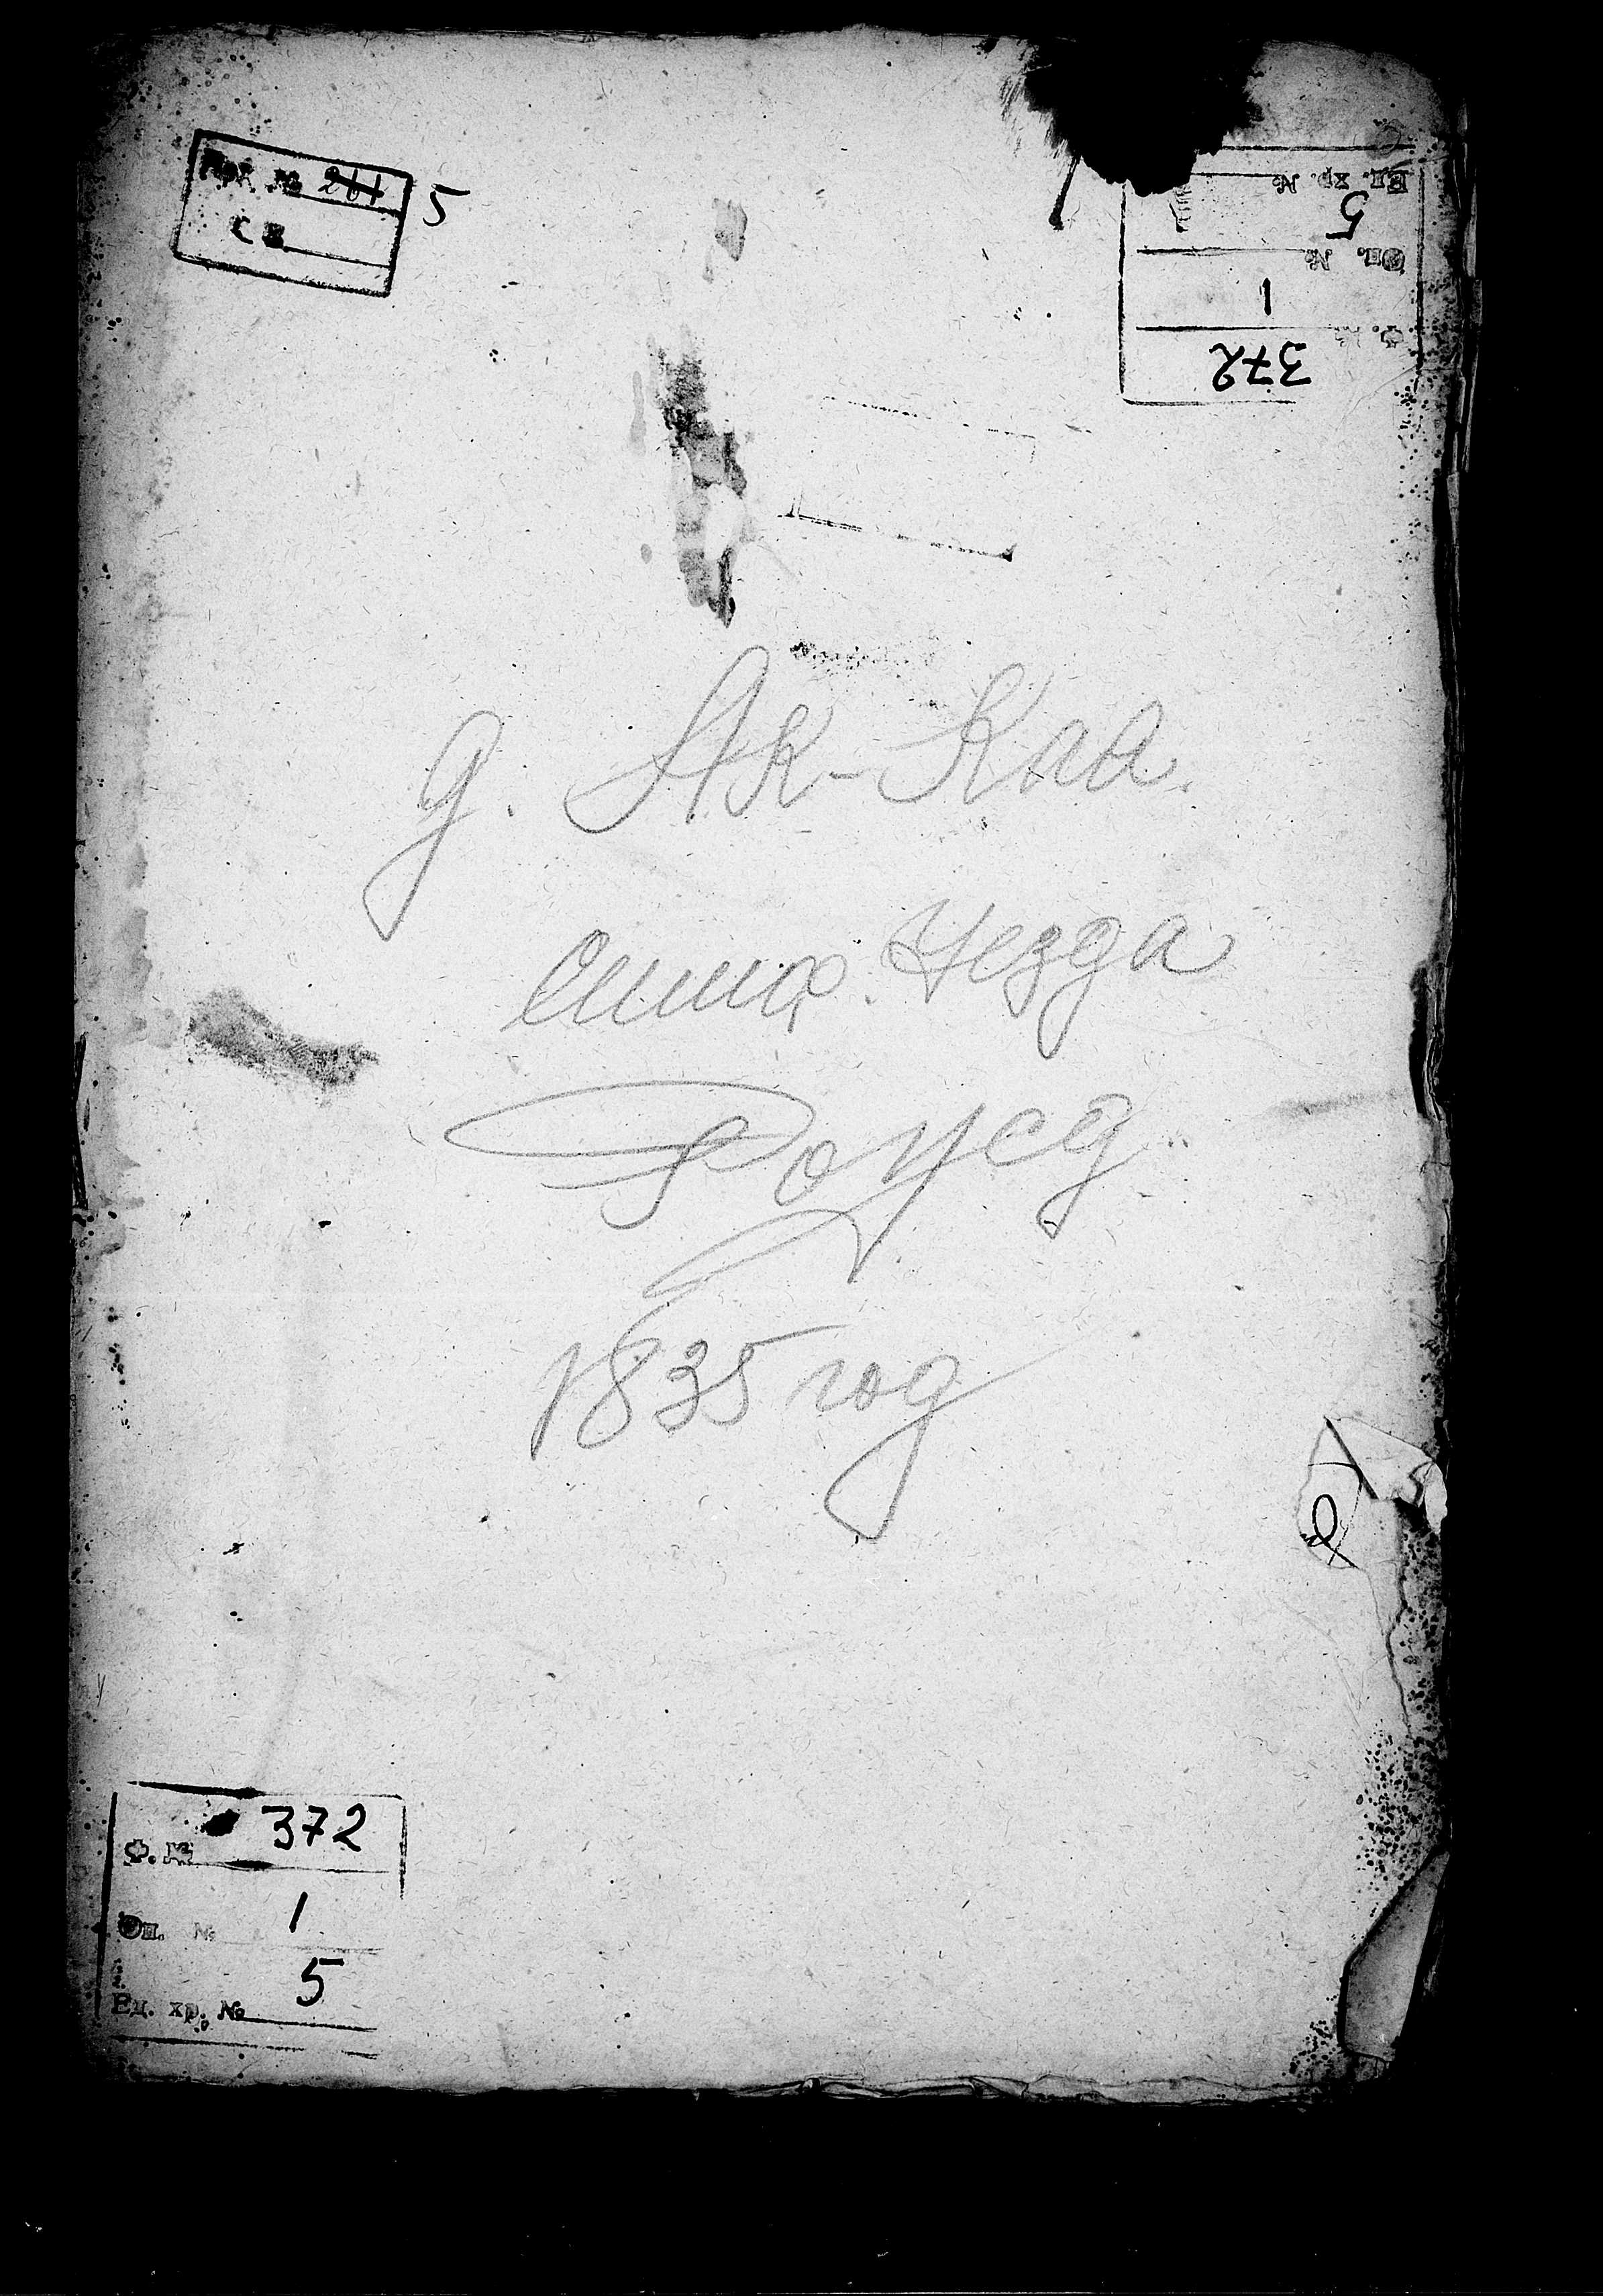 Пор. № 211 5
св
Ед. хр. №
5
Оп. №
1
Ф. №
372
д. Ак-Каа.
Симф. Уезда
1835 год
372
Ф. №
1
Оп. №
5
Ед. хр. №